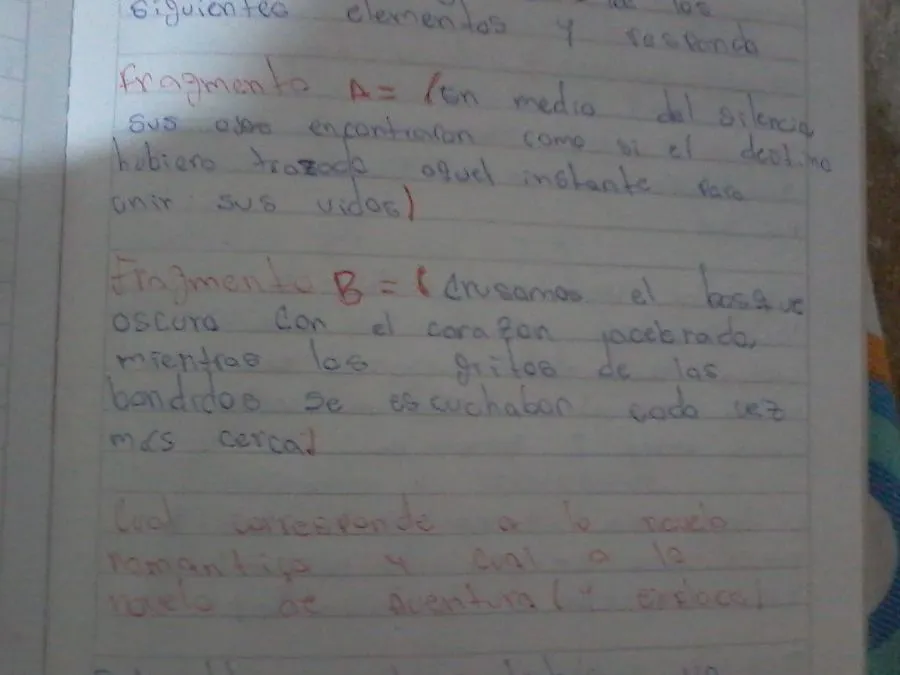 siguientes elementos y responda
Fragmento A = (En medio del silencio
sus encontraron como si el destino
hubiera trazado aquel instante para
unir sus vidas)
Fragmento B = (crusamos el bosque
oscuro con el corazon
mientras los gritos de las
bandidos se escuchaban cada vez
mas cerca)
Cual corresponde a la novela
romantica y cual a la
novela de aventura (y